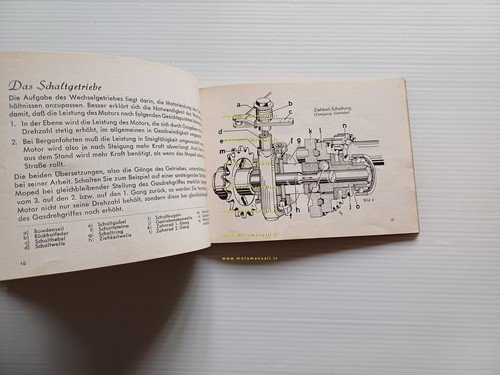 Das Schaltgetriebe
Die Aufgabe des Wechselgetriebes liegt darin, die Motorleistung den
hältnissen anzupassen. Besser erklärt sich die Notwendigkeit des
damit, daß die Leistung des Motors nach folgenden Gesichtspunkten
1. In der Ebene wird die Leistung des Motors, die sich durch
Drehzahl stetig erhöht, im allgemeinen in Geschwindigkeit
2. Bei Berganfahrten muß die Leistung in Steigfähigkeit umgewandelt
Motor wird also je nach Steigung mehr Kraft benötigt. Auch
aus dem Stand wird mehr Kraft benötigt, als wenn das Moped
Straße rollt.
Die beiden Übersetzungen, also die Gänge des Getriebes,
bei seiner Arbeit. Schalten Sie zum Beispiel auf einer
Moped bei gleichbleibender Stellung des Gasdrehgriffes
vom 3. auf den 2. bzw. auf den 1. Gang zurück, so werden Sie
Motor nicht nur seine Drehzahl erhöht, sondern diese bei
des Gasdrehgriffes noch erhöht.
a) Bowdenseil
b) Rückholfeder
c) Schalthebel
d) Schaltwelle
e) Schaltgabel
f) Schaltsteine
g) Schaltring
h) Ziehkeilwelle
i) Schaltkugeln
k) Getriebenebenwelle
l) Zahnrad 1. Gang
m) Zahnrad 2. Gang
18
Ziehkeil-Schaltung
(Zweigang-Getriebe)
a
b
c
d
e
m
Bild 4
19
www.motomanuali.it
www.motomanuali.it
www.motomanuali.it